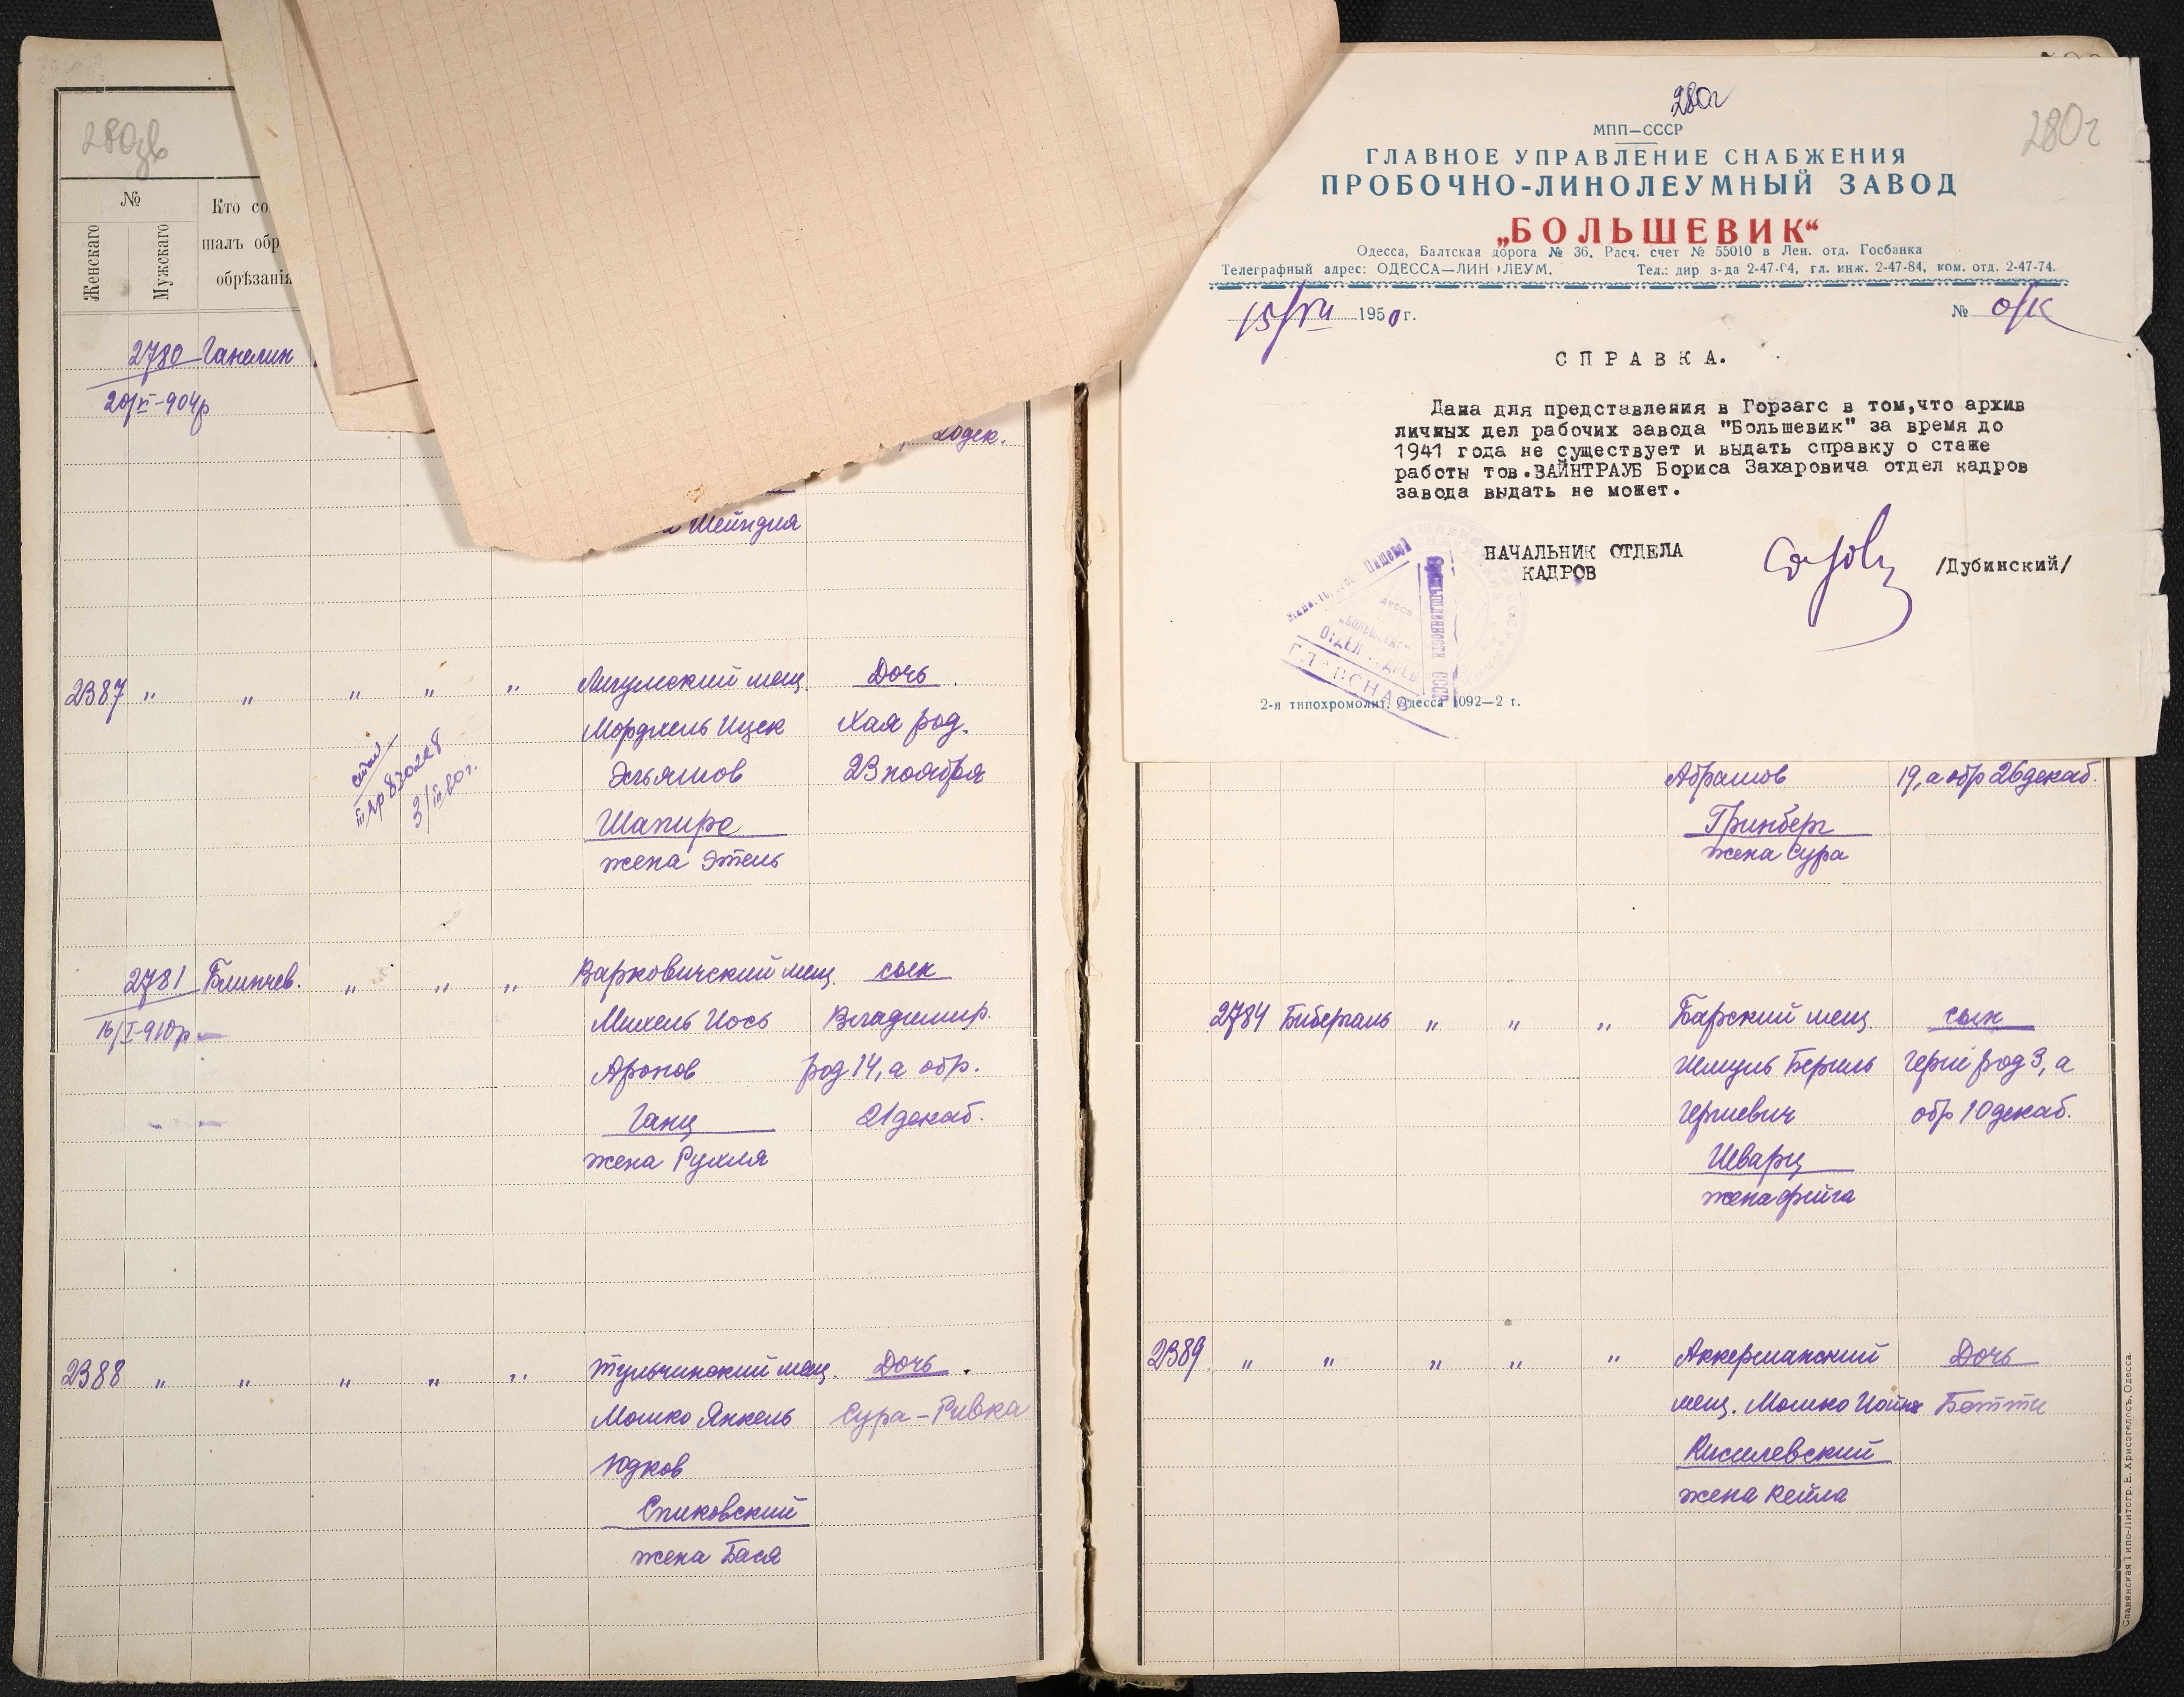 280зв
№
Женскаго
Мужскаго
Кто со
шалъ обр
обрѣзанія
2780 Ганелин
20/XI-904р
20дек.
Шейндля
2387 " " " " "
Лигумский мещ. Дочь
Мордхель Ицек Хая род.
Эльяшов 23 ноября
Шапиро
жена Этель
3/III 60 г.
2781 Блинчев. " " "
16/I-910р
Варковичский мещ. сын
Михель Иось Владимир.
Аронов род 14, а обр.
Ганц 21 декаб.
жена Рухля
2388 " " " " "
Тульчинский мещ. Дочь
Мошко Янкель Сура-Ривка
Юдков
Спиковский
жена Бася
280г
280г
МПП—СССР
ГЛАВНОЕ УПРАВЛЕНИЕ СНАБЖЕНИЯ
ПРОБОЧНО-ЛИНОЛЕУМНЫЙ ЗАВОД
„БОЛЬШЕВИК“
Одесса, Балтская дорога № 36. Расч. счет № 55010 в Лен. отд. Госбанка
Телеграфный адрес: ОДЕССА—ЛИНОЛЕУМ. Тел.: дир з-да 2-47-04, гл. инж. 2-47-84, ком. отд. 2-47-74.
15/VII 1950 г. № о/к
СПРАВКА.
Дана для представления в Горзагс в том,что архив
личных дел рабочих завода "Большевик" за время до
1941 года не существует и выдать справку о стаже
работы тов.ВАЙНТРАУБ Бориса Захаровича отдел кадров
завода выдать не может.
НАЧАЛЬНИК ОТДЕЛА
КАДРОВ
/Дубинский/
2-я типохромолит. Одесса 1092—2 г.
Абрамов 19, а обр 26 декаб.
Гринберг
жена Сура
2784 Биберталь " " "
Барский мещ. сын
Шмуль Бериль Герш род 3, а
Гершевич обр 10 декаб.
Шварц
жена Фейга
2389 " " " " "
Аккерманский Дочь
мещ. Мошко Иойна Бетти
Кисилевский
жена Кейла
Славянская Типо-Литогр. Е. Хрисогелосъ, Одесса.